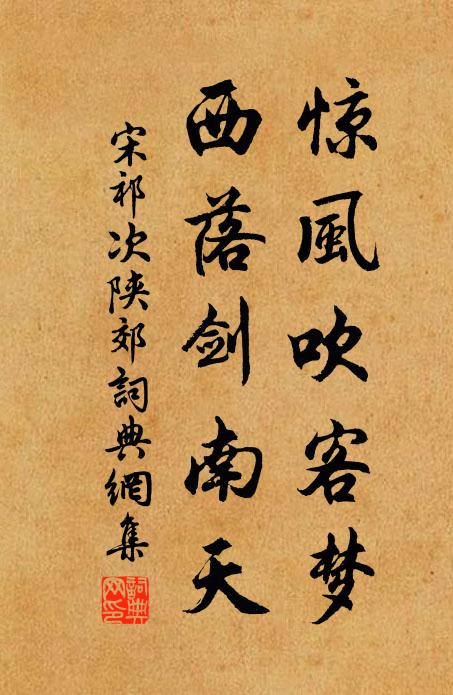 惊風吹客梦
西落剑南天
宋祁次陕郊詞典網集
詞典網印